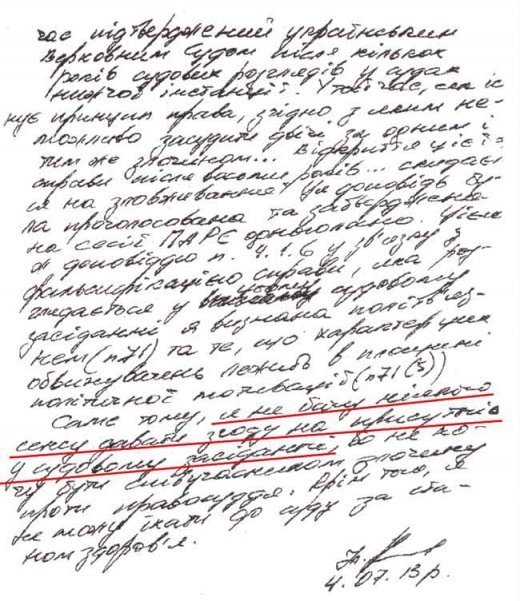 час підтверджений українським
Верховним Судом після кількох
років судових розглядів у судах
нижчої інстанції. У той час, як іс-
нує принцип права, згідно з яким не-
можливо засудити двічі за одним і
тим же злочином... Відкриття цієї
справи після восьми років... скидає
ся на зловживання". Ця доповідь бу-
ла проголосована та затверджена
на сесії ПАРЄ одноголосно. Цією
ж доповіддю п. 4.1.6 у зв'язку з
фальсифікацією справи, яка роз-
глядається у цьому судовому
засіданні я визнана політв'яз-
нем (п71) та те, що характер
обвинувачень лежить в площині
політичної мотивації (п71(3))
Саме тому, я не бачу ніякого
сенсу давати згоду на присутність
у судовому засіданні бо не хо-
чу бути співучасником злочину
проти правосуддя. Крім того, я
не можу їхати до суду за ста-
ном здоров'я.
4.07.13р.